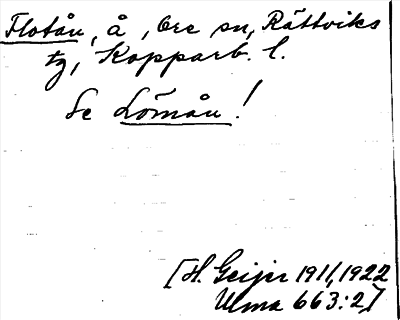 Flotån, å, Ore sn, Rättviks
tg, Kopparb. l.
Se Lömån!
[H. Geijer 1911, 1922
Ulma 663:2]